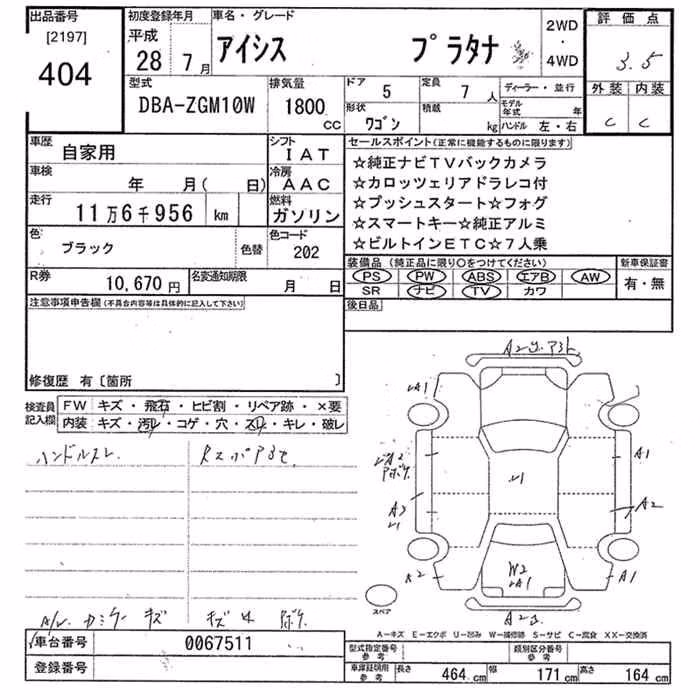 出品番号
[2197]
404
初度登録年月
平成
28年 7月
車名・グレード
アイシス プラタナ
2WD
・
4WD
評価点
3.5
外装 内装
C C
型式
DBA-ZGM10W
排気量
1800
cc
ドア 5
定員 7人
形状 ワゴン
積載 kg
ディーラー・並行
モデル年式 年
ハンドル 左・右
車歴 自家用
シフト IAT
車検 年 月( 日)
冷房 AAC
走行 11万6千956 km
燃料 ガソリン
色 ブラック 色替
色コード 202
R券 10,670円
名変通知期限 月 日
セールスポイント(正常に機能するものに限ります)
☆純正ナビTVバックカメラ
☆カロッツェリアドラレコ付
☆プッシュスタート☆フォグ
☆スマートキー☆純正アルミ
☆ビルトインETC☆7人乗
装備品(純正品に限り○をつけてください)
PS PW ABS エアB AW
SR ナビ TV カワ
新車保証書
有・無
後日品
注意事項申告欄(不具合内容等は具体的に記入して下さい)
修復歴 有〔箇所 〕
検査員記入欄
FW キズ・飛石・ヒビ割・リペア跡・×要
内装 キズ・汚れ・コゲ・穴・スレ・キレ・破レ
ハンドルスレ
A1
A1
A2
A1
W2
スペア
A-キズ E-エクボ U-凹み W-補修跡 S-サビ C-腐食 XX-交換済
車台番号 0067511
登録番号
型式指定番号 参考
類別区分番号 参考
車庫証明用 参考 長さ 464cm 幅 171cm 高さ 164cm